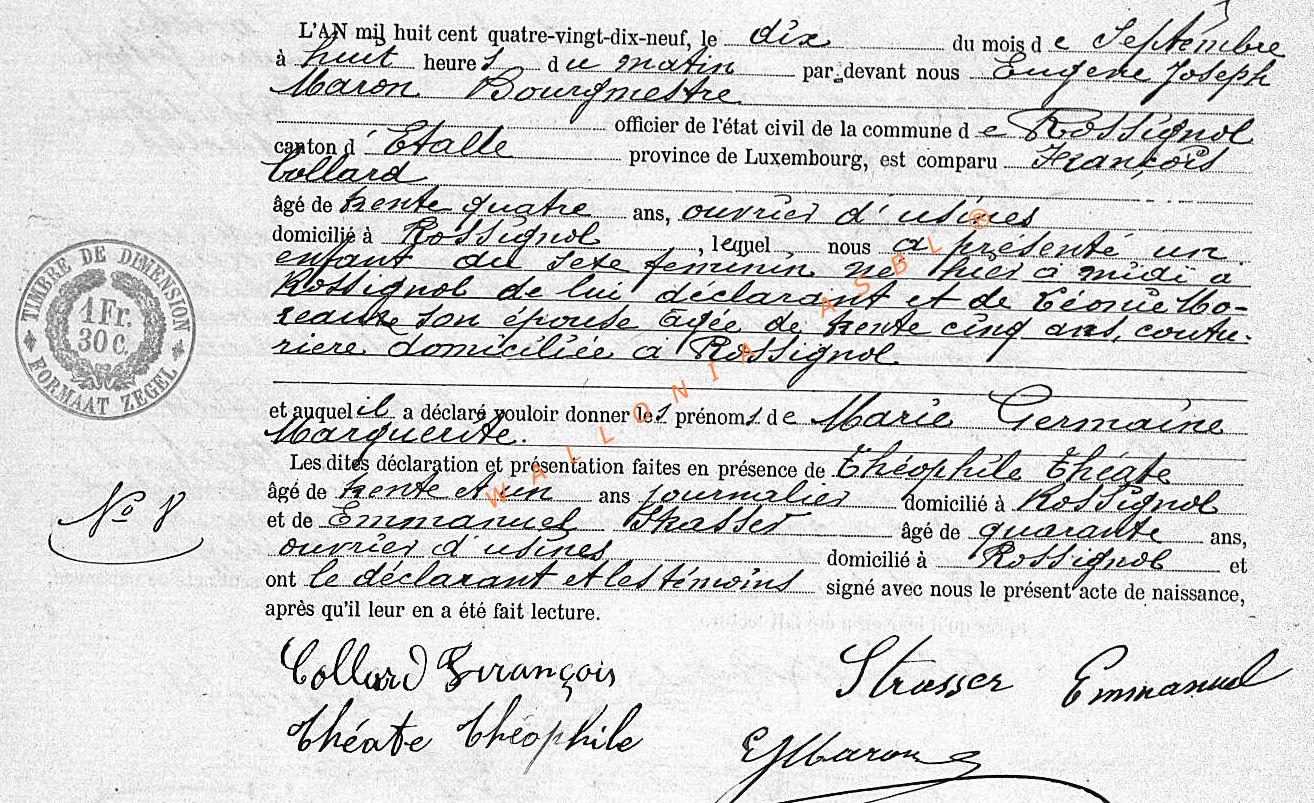 L'AN mil huit cent quatre-vingt-dix-neuf, le dix du mois de Septembre
à huit heures du matin par devant nous Eugène Joseph
Maron Bourgmestre
officier de l'état civil de la commune de Rossignol
canton d'Etalle province de Luxembourg, est comparu François
Collard
âgé de trente quatre ans, ouvrier d'usines
domicilié à Rossignol, lequel nous a présenté un
enfant du sexe féminin né hier à midi à
Rossignol de lui déclarant et de Léonie Mo-
reaux son épouse âgée de trente cinq ans, coutu-
rière domiciliée à Rossignol
et auquel il a déclaré vouloir donner les prénoms de Marie Germaine
Marguerite.
Les dites déclaration et présentation faites en présence de Théophile Théate
âgé de trente et un ans journalier domicilié à Rossignol
et de Emmanuel Strasser âgé de quarante ans,
ouvrier d'usines domicilié à Rossignol et
ont le déclarant et les témoins signé avec nous le présent acte de naissance,
après qu'il leur en a été fait lecture.
Collard François
Strasser Emmanuel
Théate Théophile
EJMaron
No 8
TIMBRE DE DIMENSION
1 Fr.
30 C.
FORMAAT ZEGEL
WALLONIA ASBL ®